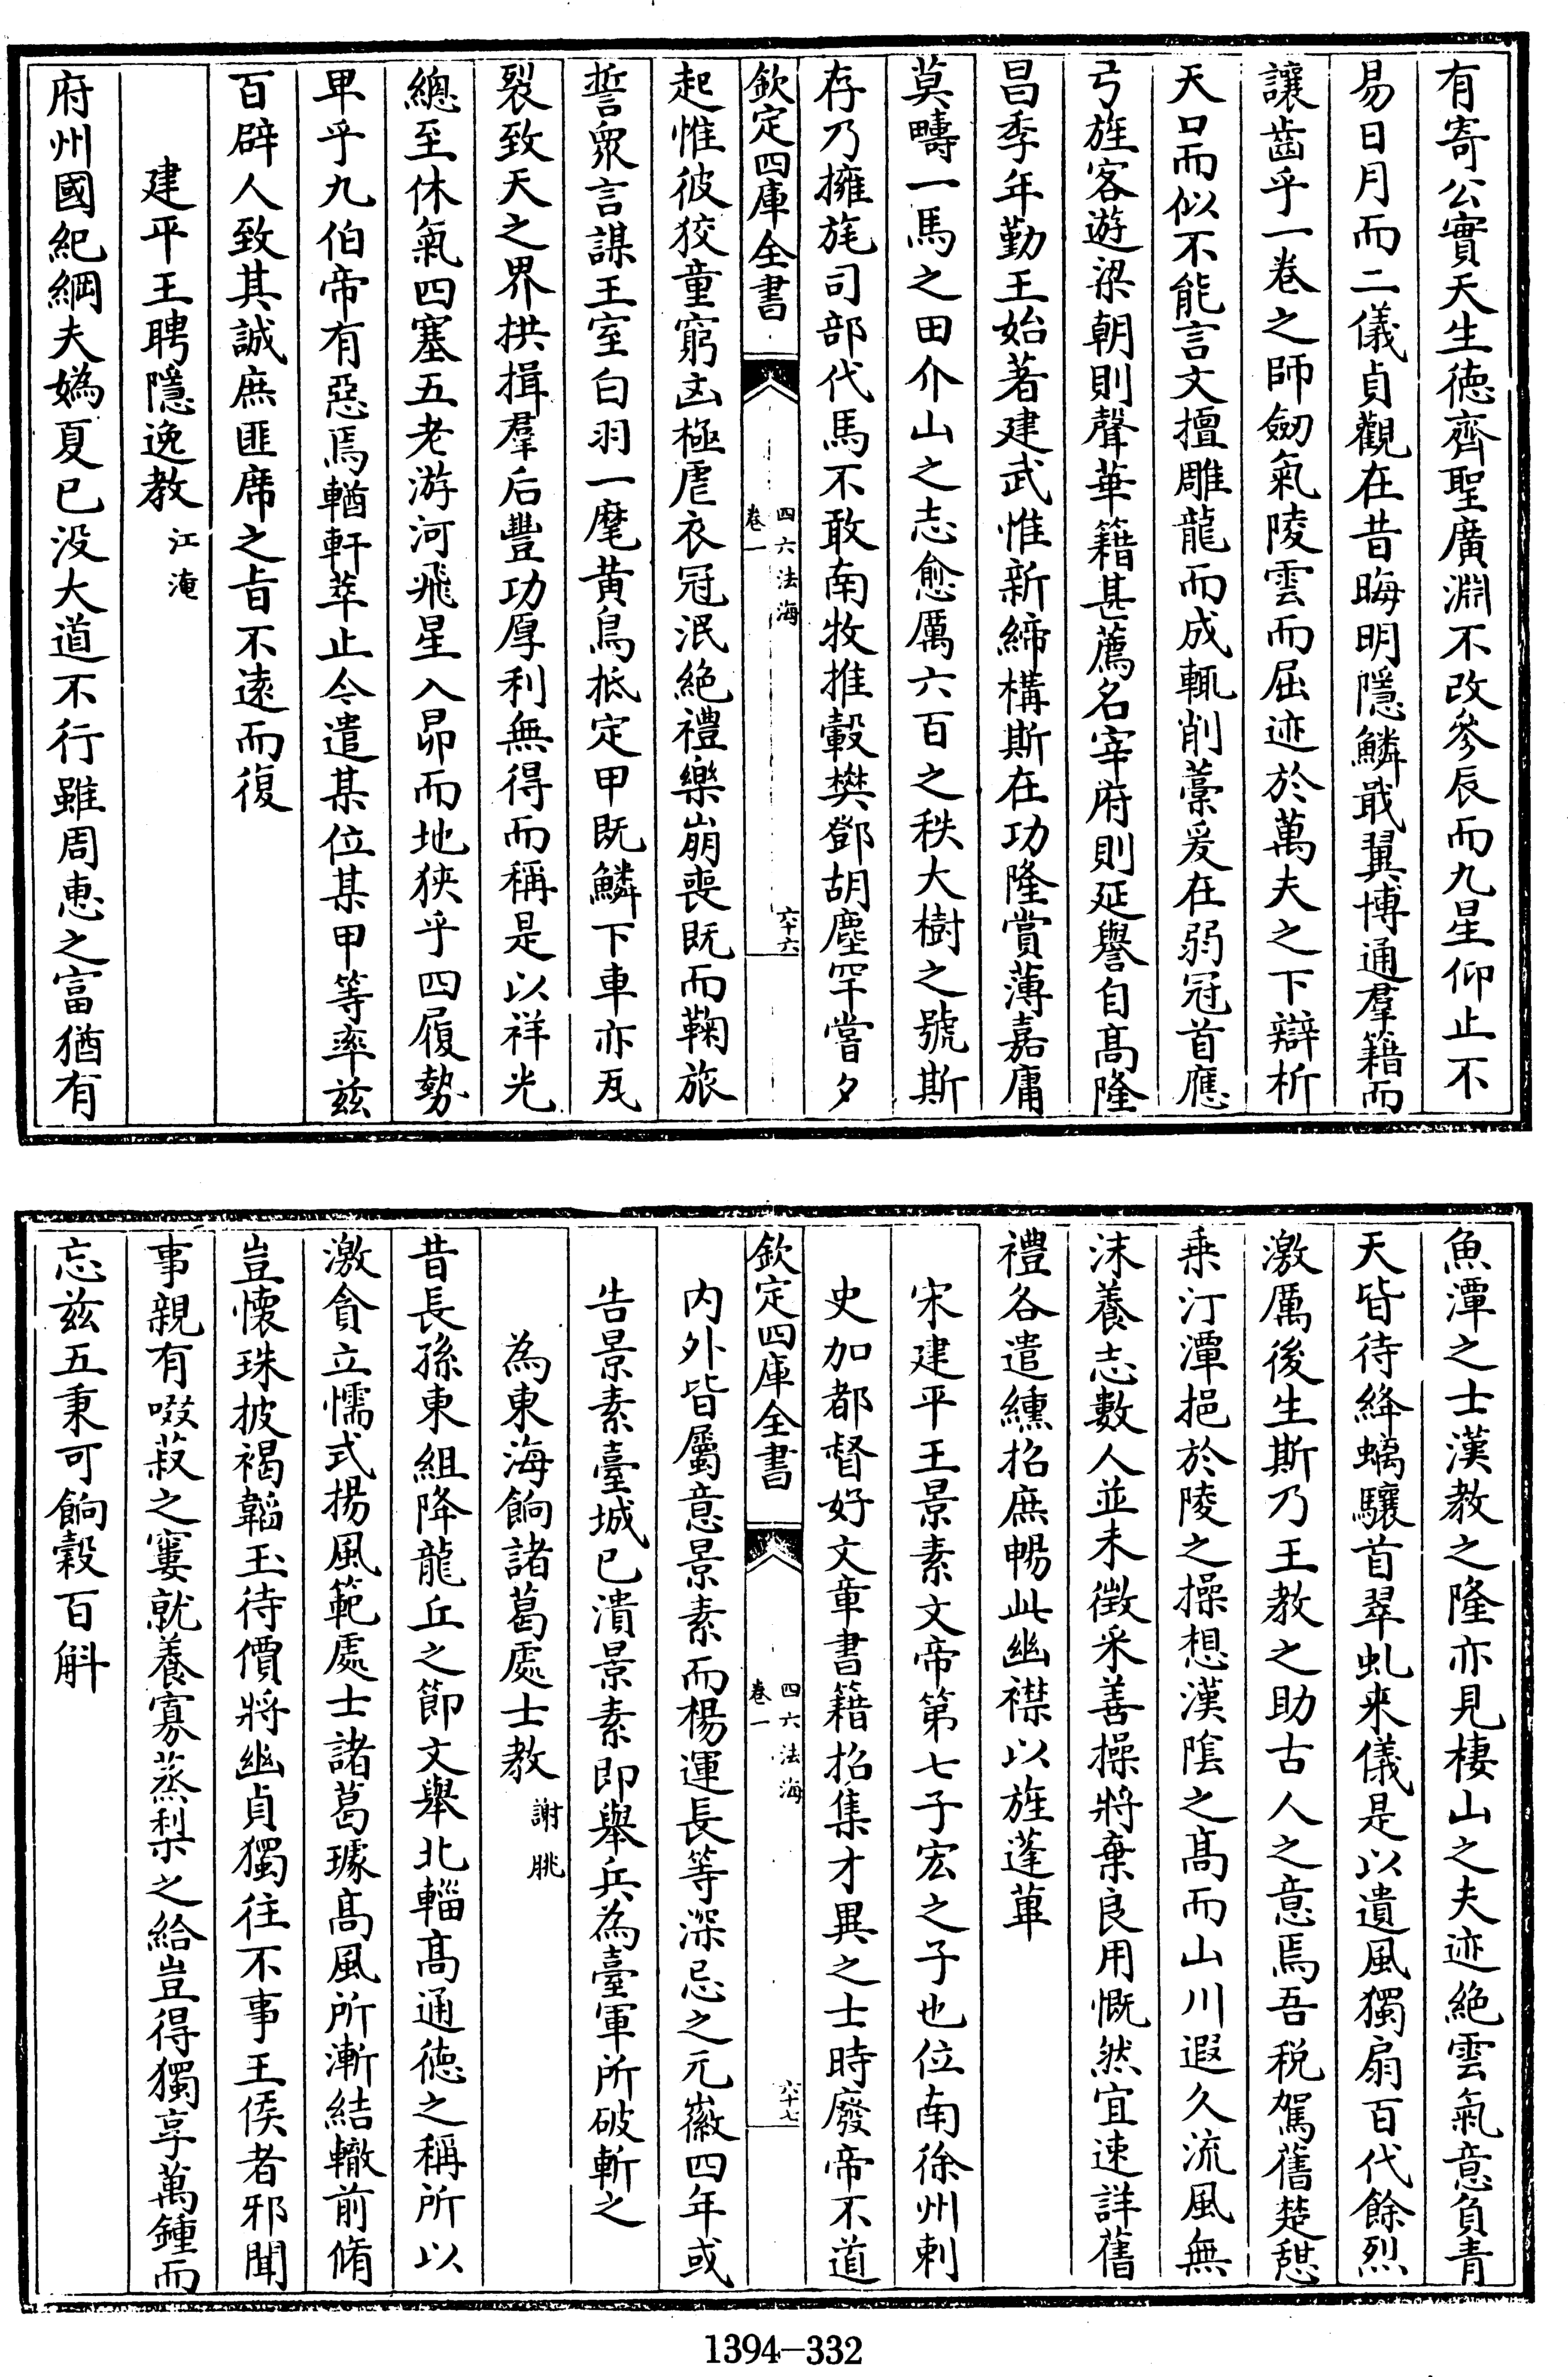 有寄公實天生德齊聖廣淵不改參辰而九星仰止不
易日月而二儀貞觀在昔晦明隱鱗戢翼博通羣籍而
讓齒乎一卷之師劒氣陵雲而屈迹於萬夫之下辯析
天口而似不能言文擅雕龍而成輒削藁爰在弱冠首應
弓旌客遊梁朝則聲華籍甚薦名宰府則延譽自高隆
昌季年勤王始著建武惟新締構斯在功隆賞薄嘉庸
莫疇一馬之田介山之志愈厲六百之秩大樹之號斯
存乃擁旄司部代馬不敢南牧推轂樊鄧胡塵罕嘗夕
欽定四庫全書
四六法海
卷一
六十六
起惟彼狡童窮凶極虐衣冠泯絶禮樂崩喪既而鞠旅
誓衆言謀王室白羽一麾黄鳥抵定甲既鱗下車亦瓦
裂致天之界拱揖羣后豐功厚利無得而稱是以祥光
總至休氣四塞五老游河飛星入昴而地狹乎四履勢
卑乎九伯帝有惡焉輶軒萃止今遣某位某甲等率兹
百辟人致其誠庶匪席之㫖不遠而復
建平王聘隱逸教
江淹
府州國紀綱夫媯夏已没大道不行雖周惠之富猶有
魚潭之士漢教之隆亦見棲山之夫迹絶雲氣意負青
天皆待絳螭驤首翠虬来儀是以遺風獨扇百代餘烈
激厲後生斯乃王教之助古人之意焉吾税駕舊楚憇
乗汀潭挹於陵之操想漢隂之髙而山川遐久流風無
沫養志數人並未徴采善操將棄良用慨然宜速詳舊
禮各遣纁招庶暢此幽襟以旌蓬蓽
宋建平王景素文帝第七子宏之子也位南徐州刺
史加都督好文章書籍招集才異之士時廢帝不道
欽定四庫全書
四六法海
卷一
六十七
内外皆屬意景素而楊運長等深忌之元徽四年或
告景素臺城已潰景素即舉兵為臺軍所破斬之
為東海餉諸葛處士教
謝朓
昔長孫東組降龍丘之節文舉北輜髙通德之稱所以
激貪立懦式揚風範處士諸葛璩髙風所漸結轍前脩
豈懷珠披褐韜玉待價將幽貞獨往不事王侯者邪聞
事親有啜菽之窶就養寡蒸梨之給豈得獨享萬鍾而
忘兹五秉可餉穀百斛
1394-332